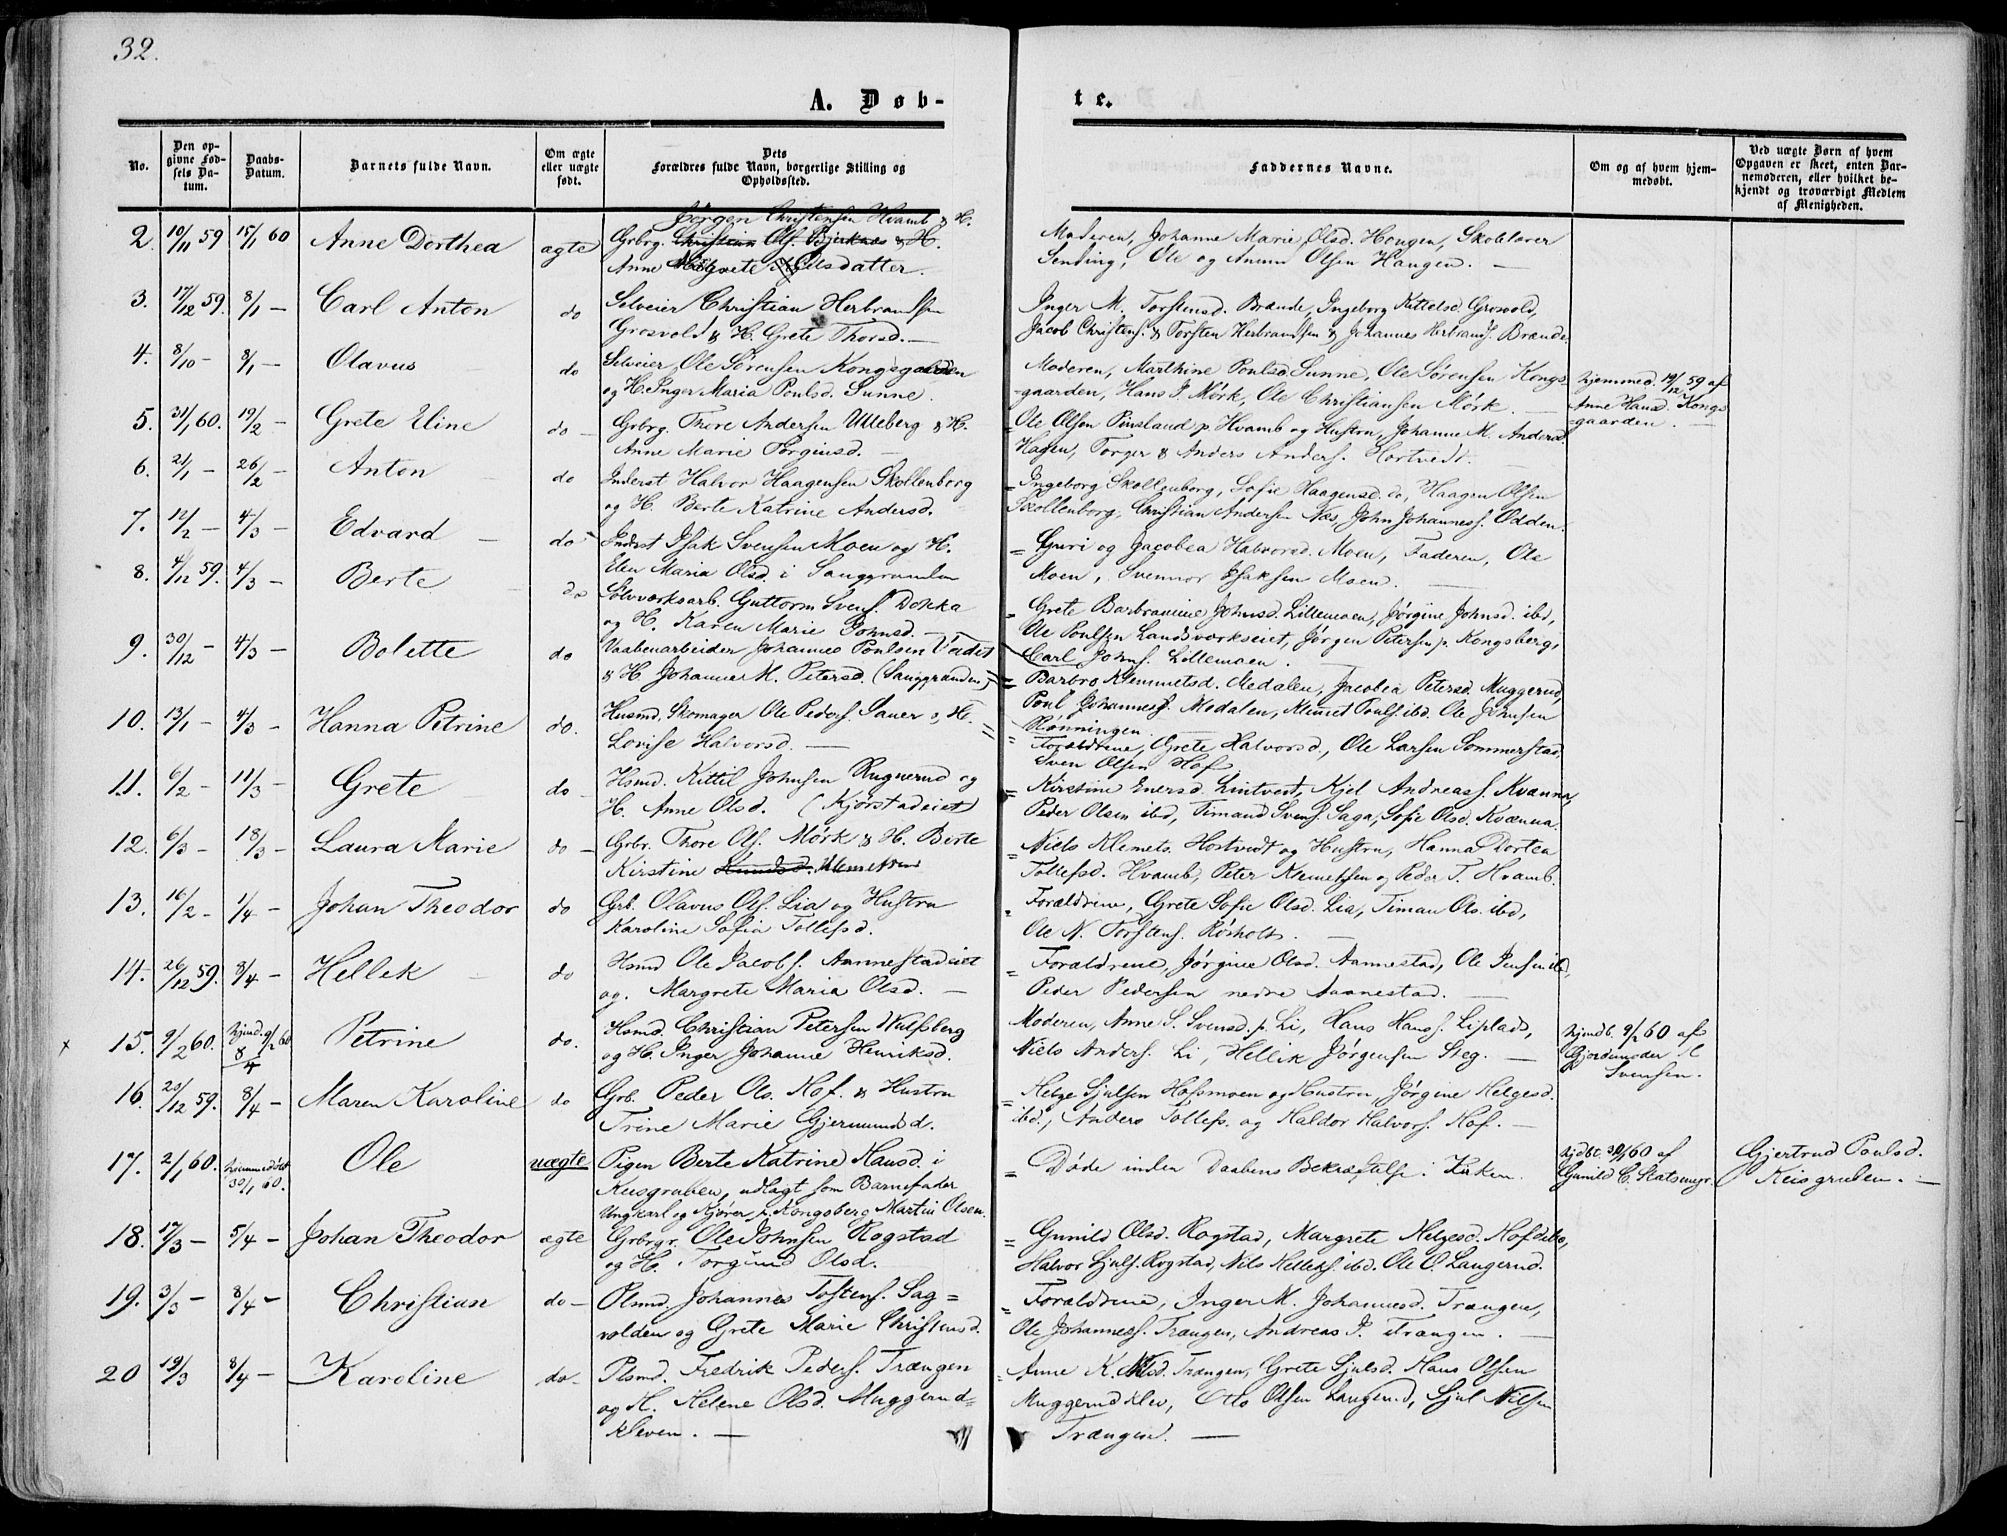 32.
A. Døb-
te.
No.
Den op-
givne Fød-
sels Da-
tum.
Daabs-
Datum.
Barnets fulde Navn.
Om ægte
eller uægte
født.
Dets
Forældres fulde Navn, borgerlige Stilling og
Opholdssted.
Faddernes Navne.
Om og af hvem hjem-
medøbt.
Ved uægte Børn af hvem
Opgaven er skeet, enten Bar-
nemoderen, eller hvilket be-
kjendt og troværdigt Medlem
af Menigheden.
2. 10/11 59 15/1 60 Anne Dorthea ægte
Jørgen Christensen Hvamb & H.
Grbrg. Christian Ols. Bjerknæs & H.
Anne Margrete Nilsdatter.
Moderen, Johanne Marie Olsd. Hougen, Skolelærer
Sending, Ole og Anund Olsen Haugen. —
3. 17/12 59. 8/1 — Carl Anton do
Selveier Christian Herbrandsen
Grosvold & H. Grete Thorsd. —
Inger M. Torstensd. Brænde, Ingeborg Kittelsd. Grosvold,
Jacob Christens. & Torsten Herbrandsen & Johannes Herbrands. Brænde
4. 8/10 — 8/1 — Olavus do
Selveier Ole Sørensen Kongsgaarden
og H. Inger Maria Poulsd. Sunne.
Moderen, Marthine Poulsd. Sunne, Ole Sørensen Kongs-
gaarden, Hans P. Mørk, Ole Christiansen Mørk. —
hjemmed. 19/12 59 af
Anne Hansd. Kongs
-gaarden. —
5. 31/1 60. 19/2 — Grete Eline do —
Grbrg. Thore Andersen Ulleberg & H.
Anne Marie Torginsd. —
Ole Olsen Pinsland p. Hvamb og Hustru, Johanne M. Andersd.
Hagen, Torger & Anders Anders. Hortvedt.
6. 21/1 — 26/2 — Anton do
Inderst Halvor Haagensen Skollenborg
og H. Berte Katrine Andersd.
Ingeborg Skollenborg, Sofie Haagensd. do, Haagen Olsen
Skollenborg, Christian Andersen Næs, John Johanness. Odden.
7. 12/2 — 4/3 — Edvard — do
Inderst Isak Svensen Moen og H.
Elen Maria Olsd. i Sauggrenden
Guri og Jacobea Halvorsd. Moen, Faderen, Ole
Moen, Svennor Isaksen Moen. —
8. 4/12 59. 4/3 — Berte do
Sølvværksarb. Guttorm Svens. Dokka
og H. Karen Marie Johnsd. —
Grete Barbramine Johnsd. Lillemoen, Jørgine Johnsd. ibd,
Ole Poulsen Landsværkseiet, Jørgen Petersen p. Kongsberg,
Carl Johns. Lillemoen. —
9. 30/12 — 4/3 — Bolette do
Vaabenarbeider Johannes Poulsen
& H. Johanne M. Petersd. (Sauggrenden)
Barbro Klemmetsd. Medalen, Jacobea Petersd. Muggerud,
Poul Johanness. Medalen, Klemet Pouls. ibd. Ole Johnsen
Rønningen.
10. 13/1 — 4/3 — Hanna Petrine do.
Husmd. Skomager Ole Peders. Sauer & H.
Lovise Halvorsd. —
Forældrene, Grete Halvorsd., Ole Larsen Sommerstad,
Sven Olsen Hof
11. 6/2 — 11/3 — Grete do —
Hsmd. Kittil Johnsen Rugnerud og
H. Anne Olsd. (Kjørstadeiet)
Kirstine Enersd. Lintvedt, Kjel Andreass. Kvænna,
Peder Olsen ibd, Timand Svens. Saga, Sofie Olsd. Kvænna.
12. 6/3 — 18/3 — Laura Marie do —
Grbr. Thore Ols. Mørk & H. Berte
Kirstine
Niels Klemets. Hostvedt og Hustru, Hanna Dortea
Tollefsd. Hvamb, Peter Klemetsen og Peder T. Hvamb.
13. 16/2 — 1/4 — Johan Theodor do
Grb. Olavus Ols. Lia og Hustru
Karoline Sofia Tollefsd.
Forældrene, Grete Sofie Olsd. Lia, Timan Ols. ibd,
Ole N. Torstens. Røsholt. —
14. 26/12 59. 8/4 — Hellek — do
Hsmd Ole Jacobs. Aannestadeiet
og. Margrete Maria Olsd. —
Forældrene, Jørgine Olsd. Aannestad, Ole Jensen ibd,
Peder Pedersen nedre Aannestad. —
x 15. 9/2 60. hjemd. 9/2 60 8/4 Petrine do.
Hsmd. Christian Petersen Wulfsberg
og H. Inger Johanne Henriksd.
Moderen, Anne S. Svensd. p. Li, Hans Hans. Liplads,
Niels Anders. Li, Hellik Jørgensen Steg. —
hjmdt. 9/2 60 af
Gjordemoder C
Svensen.
16. 20/12 59. 8/4 — Maren Karoline do
Grb. Peder Ols. Hof. & Hustru
Trine Marie Gjermundsd.
Helge Sjulsen Hofsmoen og Hustru Jørgine Helgesd.
ibd., Anders Tollefs. og Haldor Halvors. Hof. —
17. 2/1 60. hjemmedøbt 30/1 60. Ole uægte
Pigen Berte Katrine Hansd. i
Keisgruben, udlagt som Barnefader
Ungkarl og Kjører p. Kongsberg Martin Olsen.
Døde inden Daabens Bekræftelse i Kirken.
hjdbt. 30/1 60 af
Gunild C.
Gjertrud Poulsd.
Keisgruben. —
18. 17/3 — 5/4 — Johan Theodor ægte
Grbrgr. Ole Johnsen Rogstad
og H. Torgund Olsd.
Gunild Olsd. Rogstad, Margrete Helgesd. Hofseie,
Halvor Sjuls. Rogstad, Nils Helliks. ibd. Ole O. Langerud.
19. 3/3 — 8/4 — Christian do —
Plsmd. Johannes Tostens. Sag=
volden og Grete Marie Christensd.
Forældrene, Inger M. Johannesd. Trængen,
Ole Johanness. Trængen, Andreas P. Trængen. —
20 19/3 8/4 — Karoline do —
Plsmd. Fredrik Peders. Trængen
og H. Helene Olsd. Muggerud=
kleven. —
Anne K. Nilsd. Trængen, Grete Sjulsd. Hans Olsen
Muggerudklev, Otto Olsen Langerud, Sjul Nilsen
Trængen. —